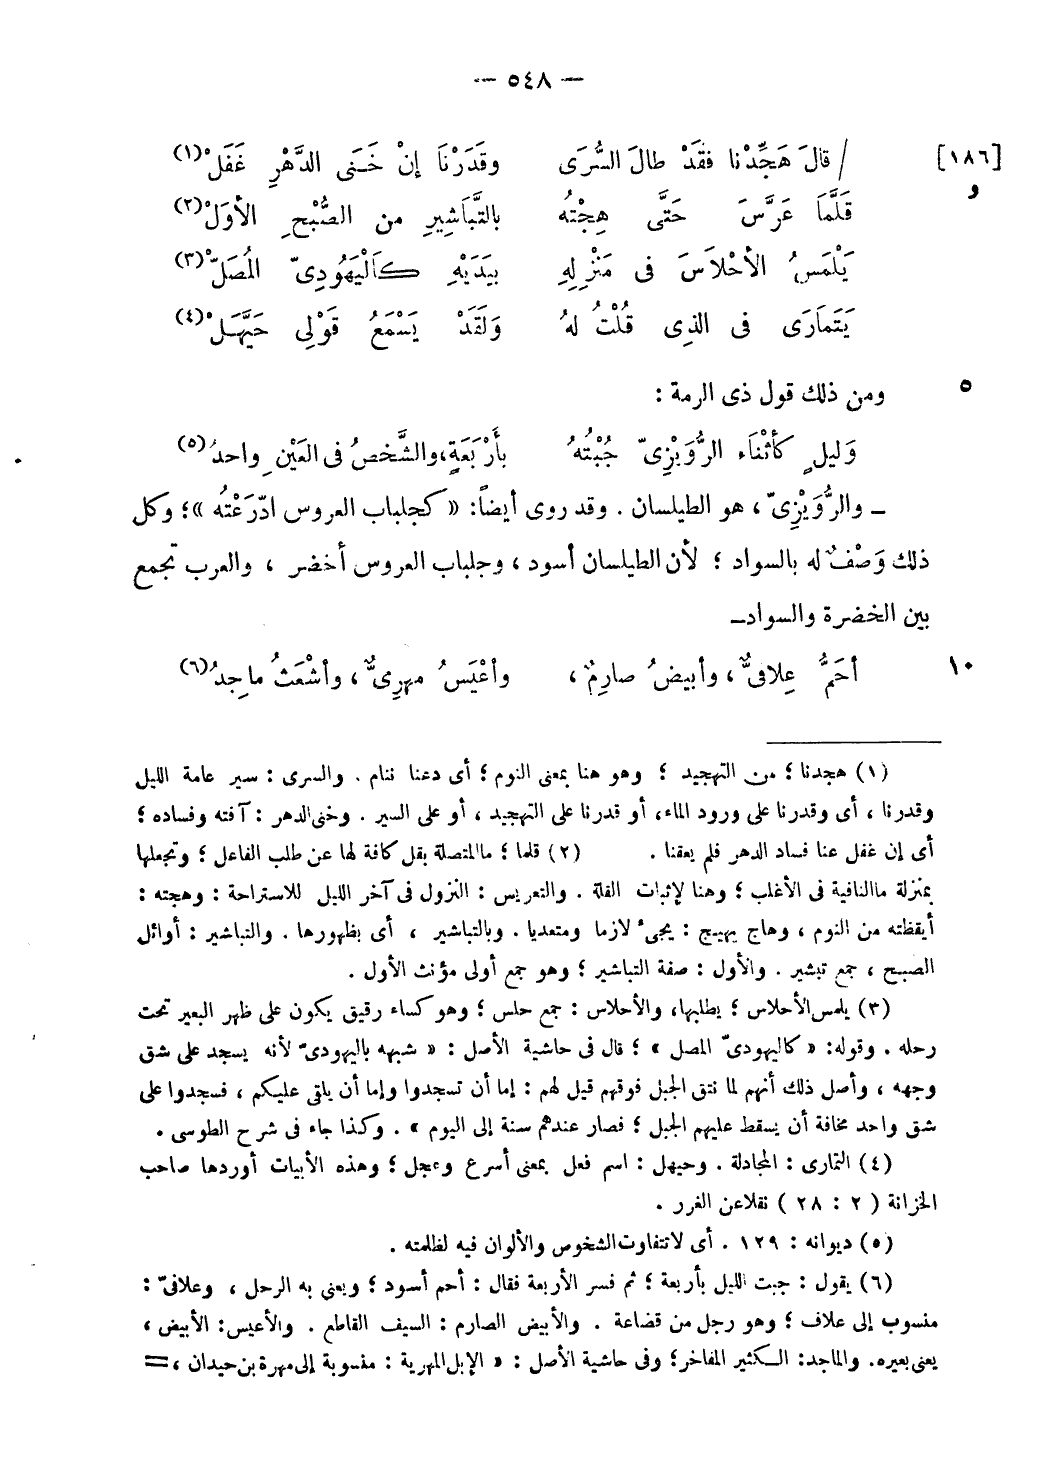 — ٥٤٨ —
[١٨٦] / قالَ هَجِّدْنا فقَدْ طالَ السُّرَى وقَدَرْنَا إنْ خَنَى الدَّهْرِ غَفَلْ(١)
و
قَلَّمَا عَرَّسَ حَتَّى هِجْتُه بالتَّبَاشِيرِ من الصُّبْحِ الأُوَلْ(٢)
يَلْمَسُ الأَحْلاَسَ فى مَنْزِلِهِ بيَدَيْهِ كاَلْيَهُودِىّ المُصَلّْ(٣)
يَتَمَارَى فى الذِى قُلْتُ لهُ وَلَقَدْ يَسْمَعُ قَوْلِى حَيَّهَلْ(٤)
٥ ومن ذلك قول ذى الرمة :
وَليلٍ كأَثْنَاء الرُّوَيْزِىّ جُبْتُهُ بأَرْبَعَةٍ، والشَّخصُ فى العَيْنِ واحدُ(٥)
ــ والرُّوَيْزِىّ ، هو الطيلسان . وقد روى أيضاً: « كجلباب العروس ادّرَعْتُه » ؛ وكل
ذلك وَصْفٌ له بالسواد ؛ لأن الطيلسان أسود ، وجلباب العروس أخضر ، والعرب تجمع
بين الخضرة والسواد ــ
١٠ أحَمُّ عِلافىٌّ ، وأبيضُ صارِمٌ ، وأعْيَسُ مهرِىٌّ ، وأشْعَثُ ماجِدُ(٦)
(١) هجدنا ؛ من التهجيد ؛ وهو هنا بمعنى النوم ؛ أى دعنا ننام . والسرى : سير عامة الليل
وقدرنا ، أى وقدرنا على ورود الماء، أو قدرنا على التهجيد ، أو على السير . وخنى الدهر : آفته وفساده ؛
أى إن غفل عنا فساد الدهر فلم يعقنا . (٢) قلما ؛ ما المتصلة بقل كافة لها عن طلب الفاعل ؛ وتجعلها
بمنزلة ما النافية فى الأغلب ؛ وهنا لإثبات القلة . والتعريس : النزول فى آخر الليل للاستراحة : وهجته :
أيقظته من النوم ، وهاج يهيج : يجىء لازما ومتعديا . وبالتباشير ، أى بظهورها . والتباشير : أوائل
الصبح ، جمع تبشير . والأول : صفة التباشير ؛ وهو جمع أولى مؤنث الأول .
(٣) يلمس الأحلاس ؛ يطلبها، والأحلاس : جمع حلس ؛ وهو كساء رقيق يكون على ظهر البعير تحت
رحله . وقوله: « كاليهودىّ المصل » ؛ قال فى حاشية الأصل : « شبهه باليهودىّ لأنه يسجد على شق
وجهه ، وأصل ذلك أنهم لما نتق الجبل فوقهم قيل لهم : إما أن تسجدوا وإما أن يلقى عليكم ، فسجدوا على
شق واحد مخافة أن يسقط عليهم الجبل ؛ فصار عندهم سنة إلى اليوم » . وكذا جاء فى شرح الطوسى .
(٤) التمارى : المجادلة . وحيهل : اسم فعل بمعنى أسرع وعجل ؛ وهذه الأبيات أوردها صاحب
الخزانة ( ٢ : ٢٨ ) نقلا عن الغرر .
(٥) ديوانه : ١٢٩ . أى لا تتفاوت الشخوص والألوان فيه لظلمته .
(٦) يقول : جبت الليل بأربعة ؛ ثم فسر الأربعة فقال : أحم أسود ؛ ويعنى به الرحل ، وعلافىّ :
منسوب إلى علاف ؛ وهو رجل من قضاعة . والأبيض الصارم : السيف القاطع . والأعيس: الأبيض ،
يعنى بعيره. والماجد: الكثير المفاخر؛ وفى حاشية الأصل : « الإبل المهرية : منسوبة إلى مهرة بن حيدان ، =